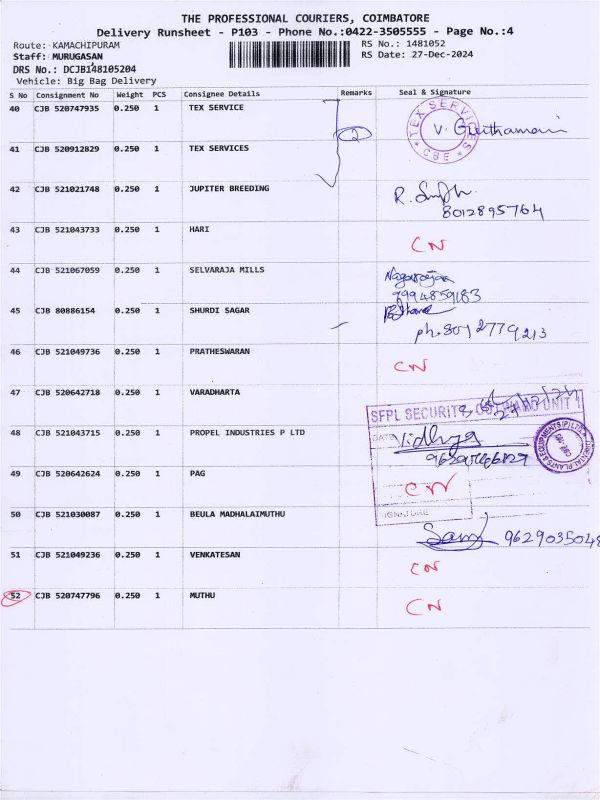 THE PROFESSIONAL COURIERS, COIMBATORE
Delivery Runsheet - P103 - Phone No.:0422-3505555 - Page No.:4
Route: KAMACHIPURAM
RS No.: 1481052
Staff: MURUGASAN
RS Date: 27-Dec-2024
DRS No.: DCJB148105204
Vehicle: Big Bag Delivery
S No Consignment No Weight PCS Consignee Details Remarks Seal & Signature
40 CJB 520747935 0.250 1 TEX SERVICE
2
TEX SERVICES
CBE
V.
41 CJB 520912829 0.250 1 TEX SERVICES
42 CJB 521021748 0.250 1 JUPITER BREEDING
R.
8012895764
43 CJB 521043733 0.250 1 HARI CN
44 CJB 521067059 0.250 1 SELVARAJA MILLS
Nagarajan
9994859183
45 CJB 80886154 0.250 1 SHURDI SAGAR
ph. 8012779213
46 CJB 521049736 0.250 1 PRATHESWARAN CN
47 CJB 520642718 0.250 1 VARADHARTA
SFPL SECURITY
UNIT 1
48 CJB 521043715 0.250 1 PROPEL INDUSTRIES P LTD
DATE
Vidhya
49 CJB 520642624 0.250 1 PAG CN
SIGNATURE
50 CJB 521030087 0.250 1 BEULA MADHALAIMUTHU
51 CJB 521049236 0.250 1 VENKATESAN CN
52 CJB 520747796 0.250 1 MUTHU CN